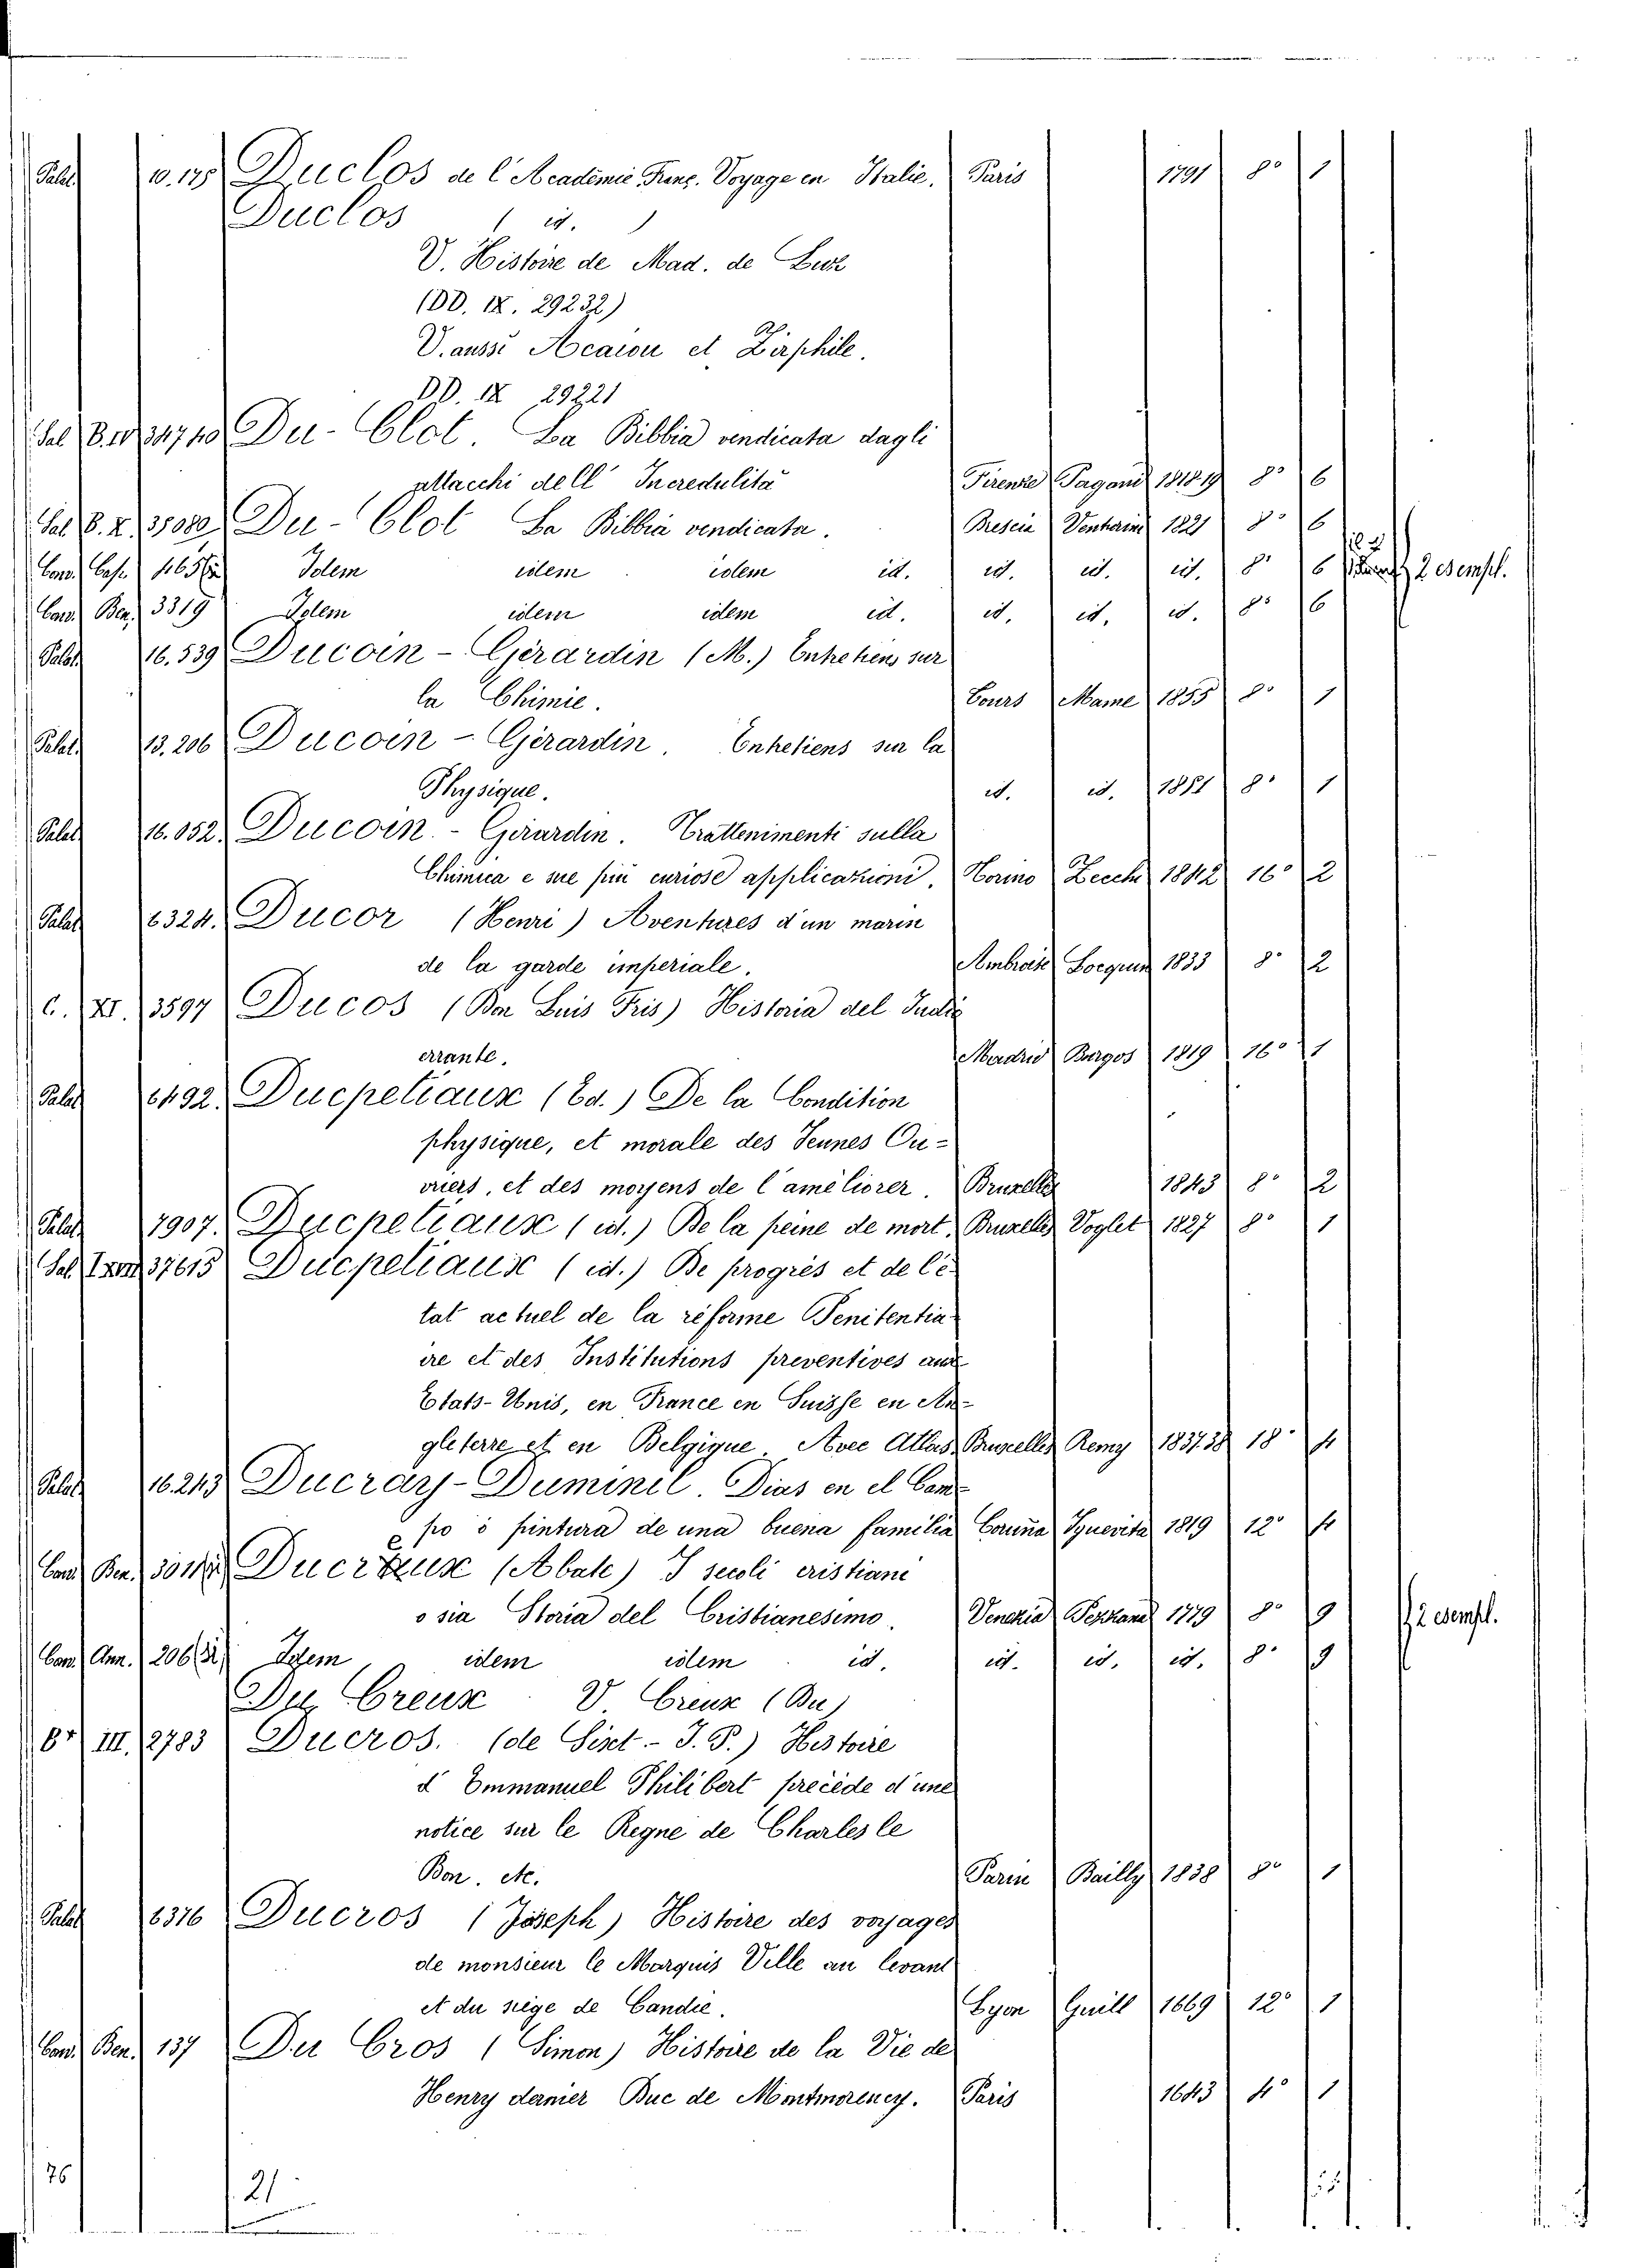 Palat. 10.175 Duclos de l'Academie Franç. Voyage en Italie. Paris 1791 8° 1
Duclos ( id. )
V. Histoire de Mad. de Luz
(DD. IX. 29232)
V. aussi Acaiou et Zirphile.
DD. IX 29221
Sal. B. IV 34740 Du-Clot. La Bibbia vendicata dagli
attacchi dell' Incredulità Firenze Pagani 1818.19 8° 6
Sal. B. X. 35080 Du-Clot La Bibbia vendicata. Brescia Venturini 1821 8° 6
Cons. Cap. Idem idem idem id. id. id. id. 8° 6 2 esempl.
Cons. Ben. 3319 Idem idem idem id. id. id. id. 8° 6
Palat. 16.539 Ducoin-Girardin (M.) Entretiens sur
la Chimie. Tours Mame 1855 8° 1
Palat. 13.206 Ducoin-Girardin. Entretiens sur la
Physique. id. id. 1851 8° 1
Palat. 16.052. Ducoin-Girardin. Trattenimenti sulla
Chimica e sue più curiose applicazioni. Torino Zecchi 1842 16° 2
Palat. 6324. Ducor (Henri) Aventures d'un marin
de la garde imperiale. Ambroise 1833 8° 2
C. XI. 3597 Ducos (Don Luis Fris) Historia del Indio
errante. Madrid Burgos 1819 16° 1
Palat. 6492. Ducpetiaux (Ed.) De la Condition
physique, et morale des Jeunes Ou-
vriers, et des moyens de l'améliorer. Bruxelles 1843 8° 2
Palat. 7907. Ducpetiaux (id.) De la peine de mort. Bruxelles Voglet 1827 8° 1
Sal. 37615 Ducpetiaux (id.) De progrès et de l'é-
tat actuel de la réforme Penitentia-
ire et des Institutions preventives aux
Etats-Unis, en France en Suisse en An-
gleterre et en Belgique. Avec Atlas. Bruxelles Remy 1837.38 18° 4
Palat. 16.243 Ducray-Duminil. Dias en el Cam-
po ò pintura de una buena familia Coruña Iguereta 1819 12° 4
Cons. Ben. Ducreux (Abate) I secoli cristiani
o sia Storia del Cristianesimo. Venezia Pezzana 1779 8° 9 2 esempl.
Cons. Ann. 206 Idem idem idem id. id. id. id. 8° 9
Du Creux V Creux (Du)
III. 2783 Ducros. (de Sixt.- J. P.) Histoire
d'Emmanuel Philibert precède d'une
notice sur le Regne de Charles le
Bon. etc. Paris Bailly 1838 8° 1
Palat. 6376 Ducros (Joseph) Histoire des voyages
de monsieur le Marquis Ville au levant
et du siège de Candie. Lyon Guill 1669 12° 1
Cons. Ben. 137 Du Cros (Simon) Histoire de la Vie de
Henry dernier Duc de Montmorency. Paris 1643 4° 1
76
21